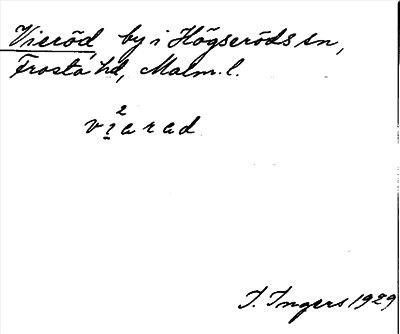 Vieröd by i Högseröds sn,
Frosta hd, Malm. l.
2
vı̣arad
I. Ingers 1929